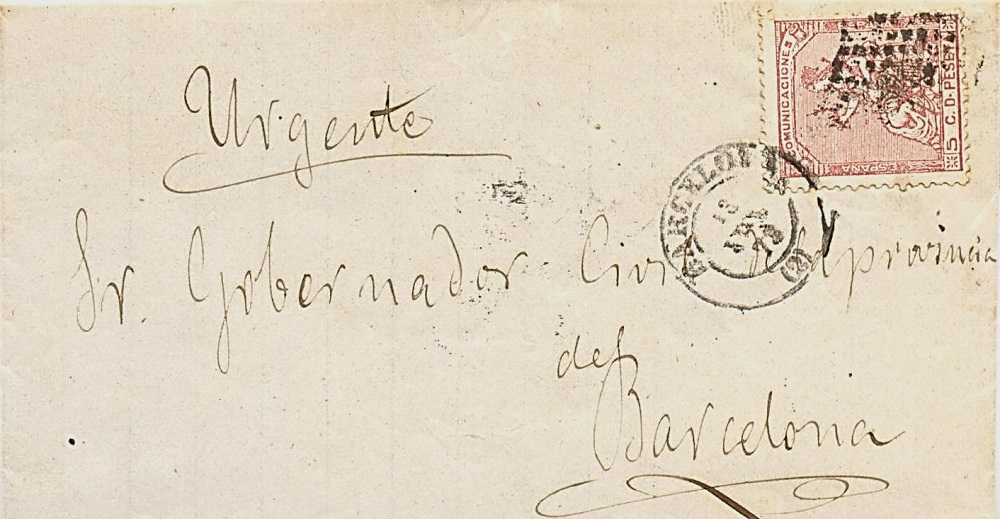 Urgente
Sr. Gobernador Civil
provincia
de
Barcelona
COMUNICACIONES
5 C. D. PESETA
ESPAÑA
BARCELONA
(2)